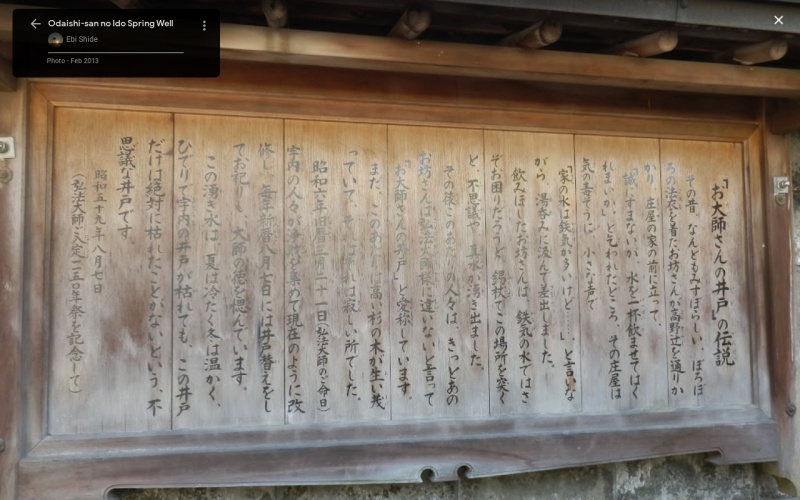 Odaishi-san no Ido Spring Well
Ebi Shide
Photo - Feb 2013
「お大師さんの井戸」の伝説
その昔、なんともみすぼらしい、ぼろぼ
ろの法衣を着たお坊さんが高野辻を通りか
かり、庄屋の家の前に立って、
「誠にすまないが、水を一杯飲ませてはく
れまいか」と乞われたところ、その庄屋は
気の毒そうに、小さな声で
「家の水は鉄気が多いけど……」と言いな
がら、湯呑みに汲んで差出しました。
飲みほしたお坊さんは、鉄気の水ではさ
ぞお困りだろうと、錫杖でこの場所を突く
と、不思議や、真水が湧き出ました。
その後このあたりの人々は、きっとあの
お坊さんは弘法大師様に違いないと言って
「お大師さんの井戸」と愛称しています。
また、このあたりは高い杉の木が生い茂
っていて、それは寂しい所でした。
昭和六年旧暦三月二十一日(弘法大師のご命日)
字内の人々が浄財を集めて現在のように改
修し、毎年新暦八月七日には井戸替えをし
てお祀りし、大師の徳を偲んでいます。
この湧き水は、夏は冷たく冬は温かく、
ひでりで字内の井戸が枯れても、この井戸
だけは絶対に枯れたことがないという、不
思議な井戸です。
昭和五十九年八月七日
(弘法大師ご入定一一五〇年祭を記念して)